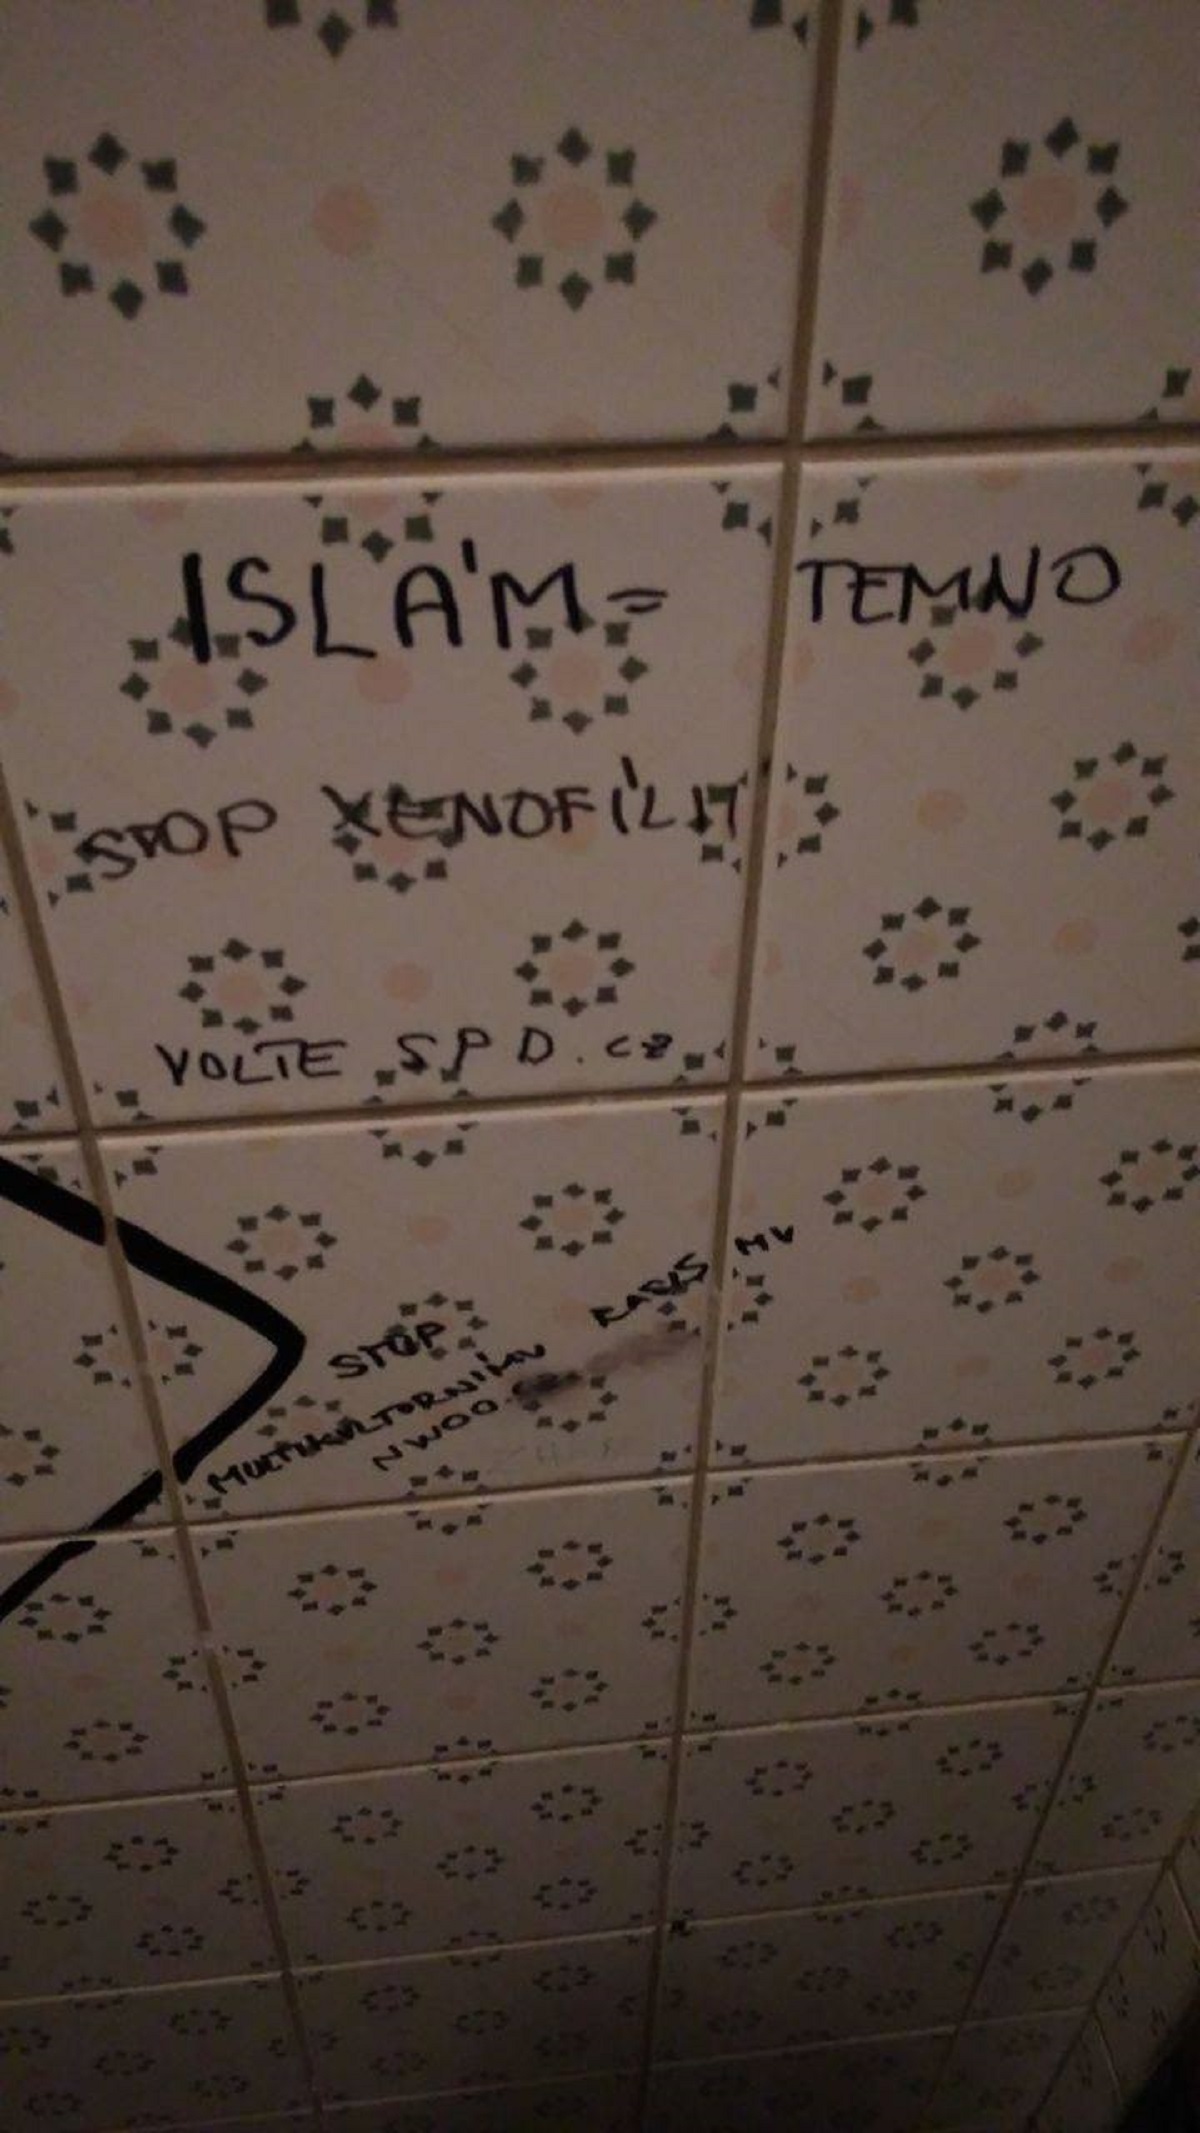 ISLÁM = TEMNO
STOP XENOFÍLII
VOLTE SPD.cz
STOP
MULTIKULTURNÍMU RASISMU
NWOO.